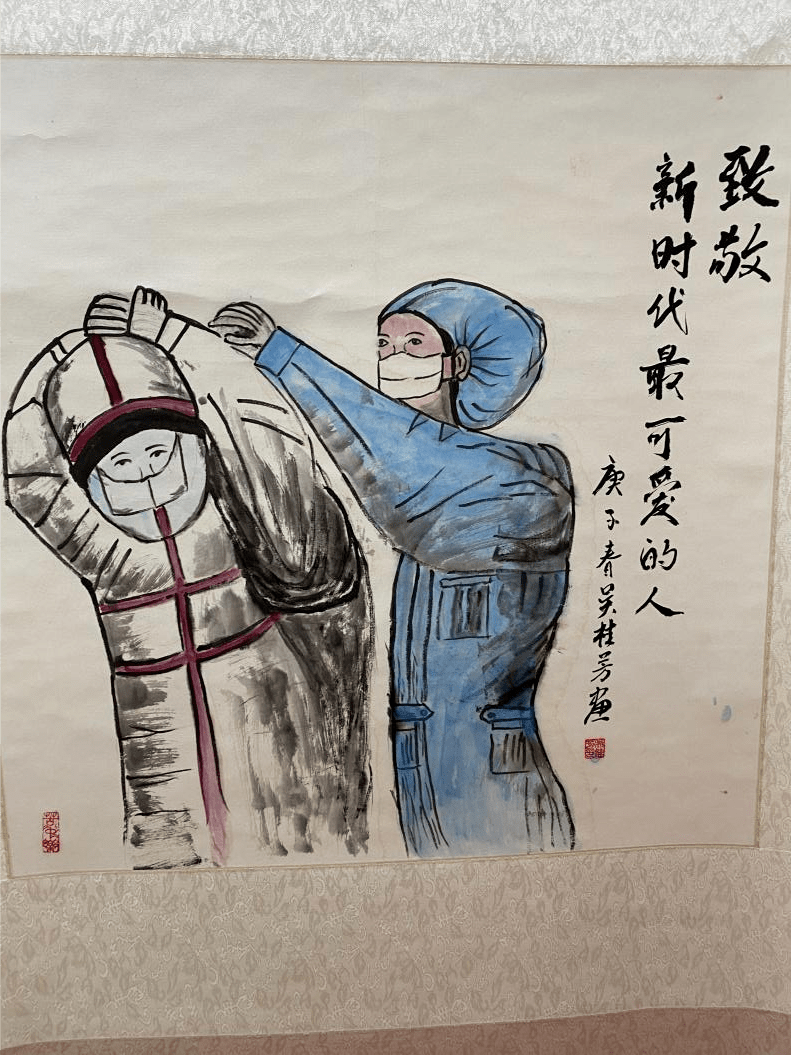 致敬
新时代最可爱的人
庚子春吴桂芳画
苦中乐